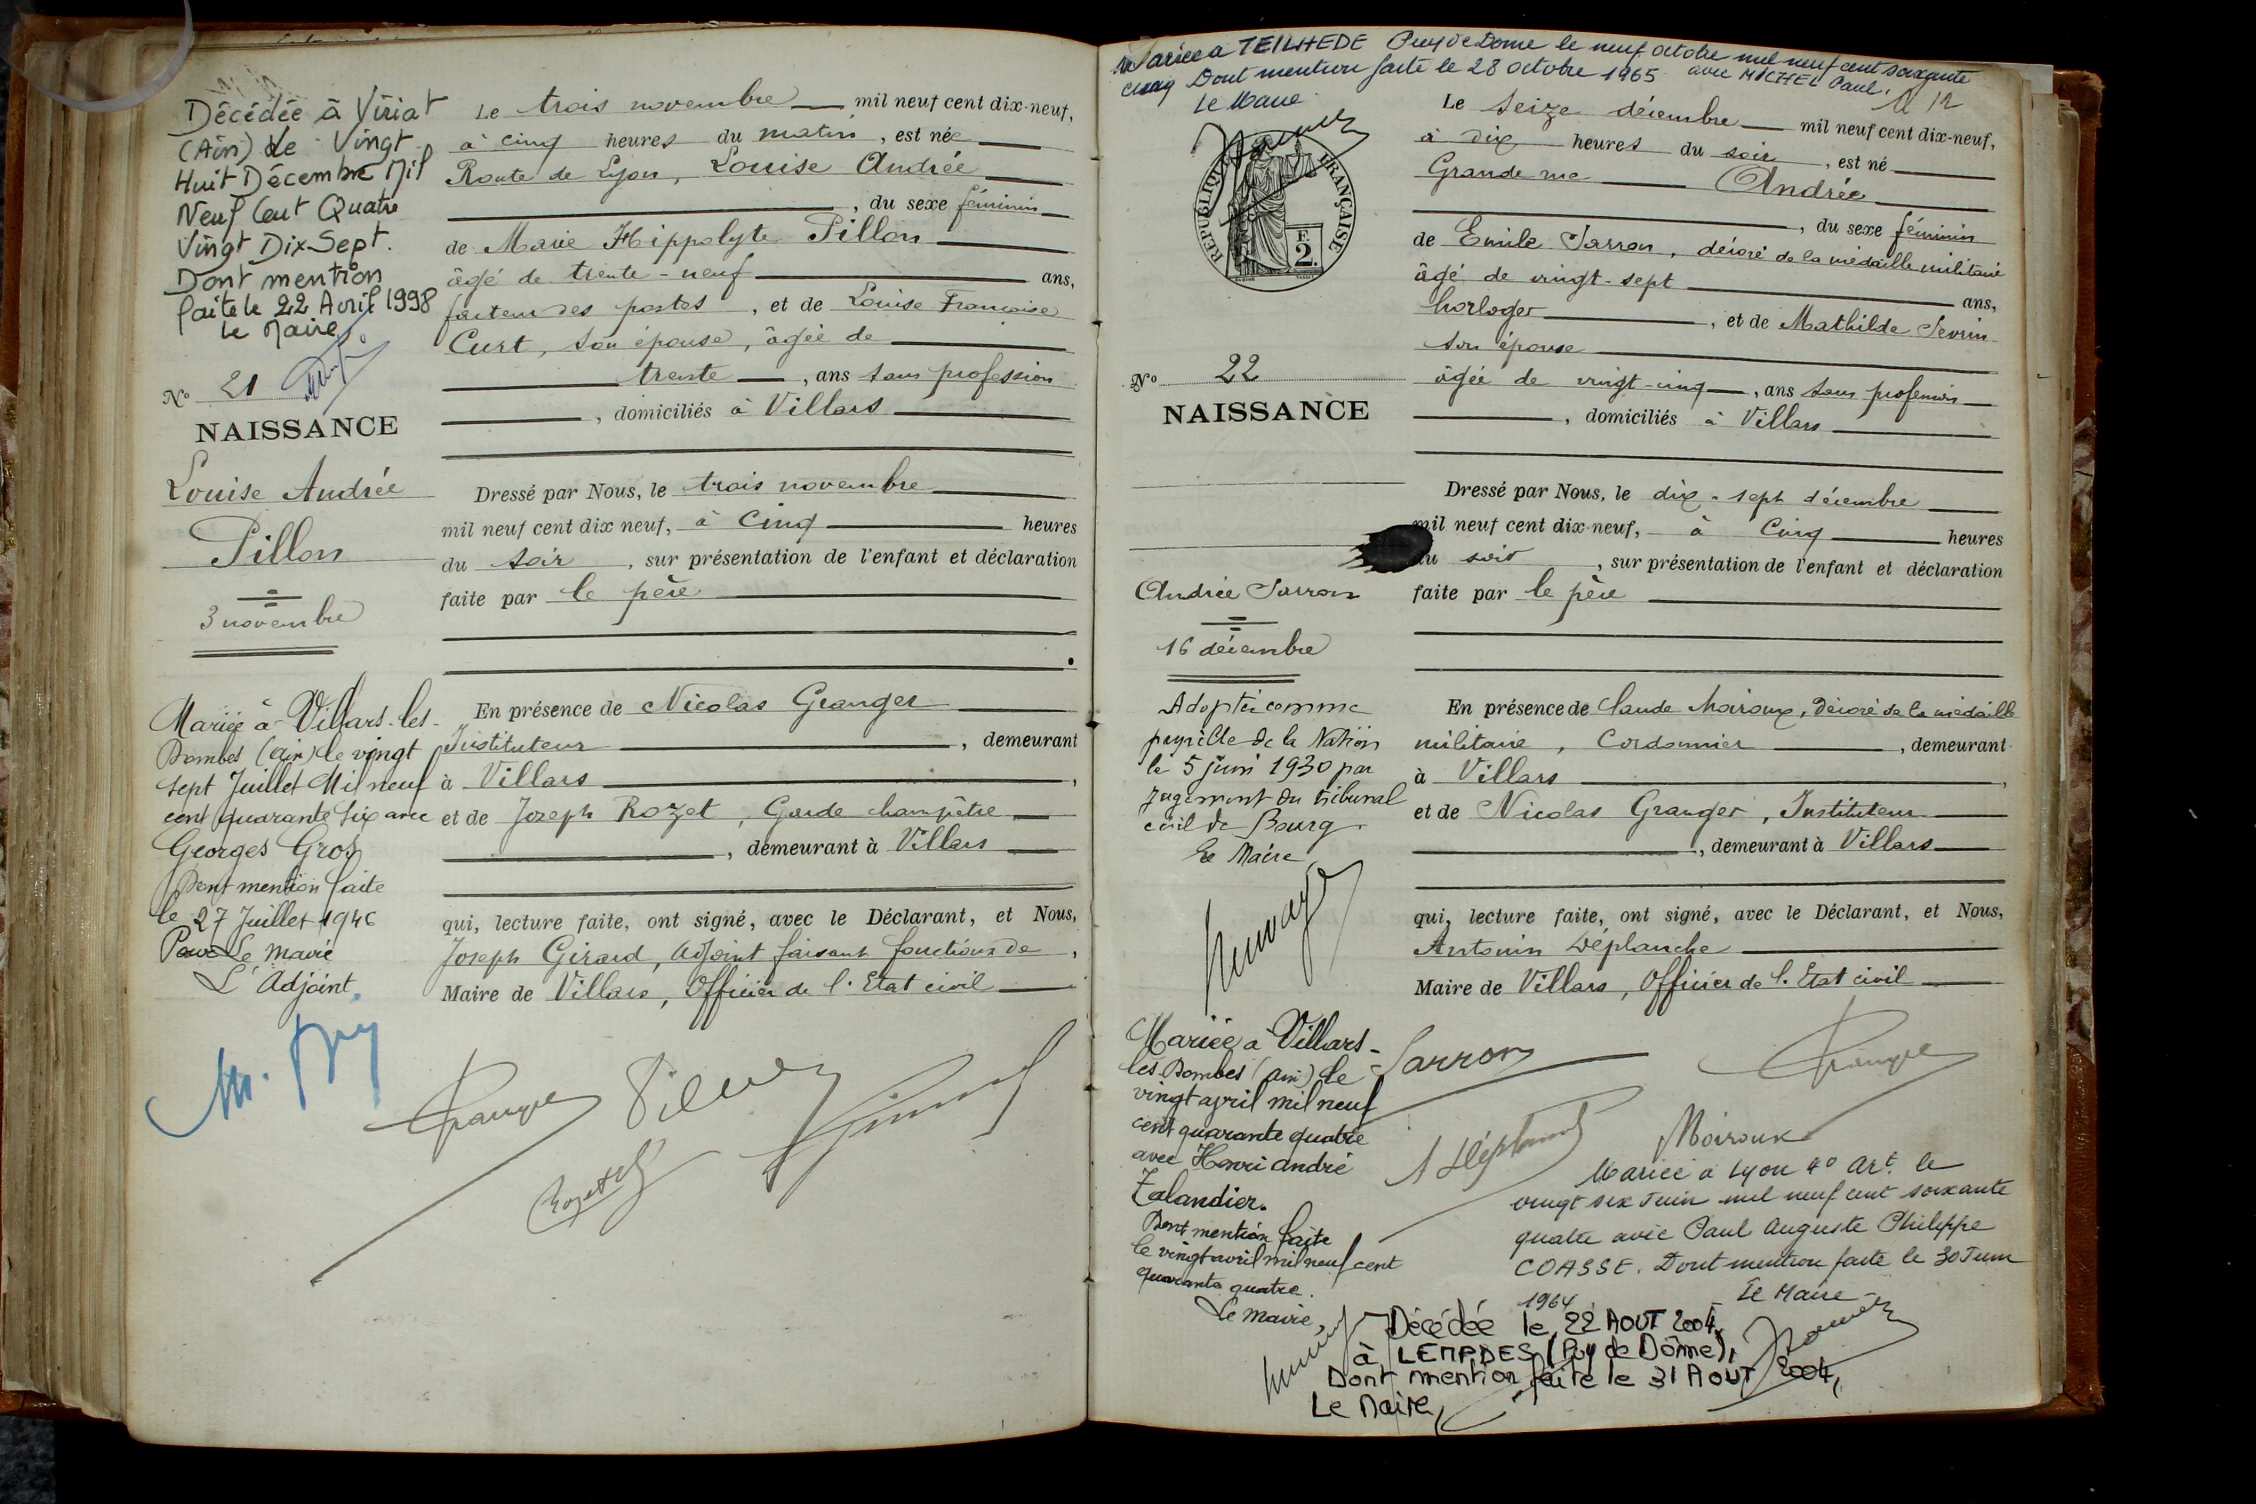 Décédée à Viriat
(Ain) le Vingt
Huit Décembre Mil
Neuf Cent Quatre
Vingt Dix-Sept.
Dont mention
faite le 22 Avril 1998
Le Maire
N° 21
NAISSANCE
Louise Andrée
Pillon
3 novembre
Mariée à Villars-les-
Dombes (Ain) le vingt
sept Juillet Mil neuf
cent quarante six avec
Georges Gros
Dont mention faite
le 27 Juillet 1946
Pour Le Maire
L'Adjoint
Le trois novembre mil neuf cent dix-neuf,
à cinq heures du matin, est née
Route de Lyon, Louise Andrée
, du sexe féminin
de Marie Hippolyte Pillon
âgé de trente-neuf ans,
facteur des postes, et de Louise Françoise
Curt, son épouse, âgée de
trente, ans sans profession
, domiciliés à Villars
Dressé par Nous, le trois novembre
mil neuf cent dix neuf, à cinq heures
du soir, sur présentation de l'enfant et déclaration
faite par le père
En présence de Nicolas Granger
Instituteur, demeurant
à Villars,
et de Joseph Rozet, Garde champêtre
, demeurant à Villars
qui, lecture faite, ont signé, avec le Déclarant, et Nous,
Joseph Girard, adjoint faisant fonctions de,
Maire de Villars, Officier de l'Etat civil
Mariée à TEILHEDE Puy de Dome le neuf octobre mil neuf cent soixante
cinq Dont mention faite le 28 octobre 1965 avec MICHEL Paul.
Le Maire
RÉPUBLIQUE FRANÇAISE
F.
2.
N° 22
NAISSANCE
Andrée Sarron
16 décembre
Adoptée comme
pupille de la Nation
le 5 juin 1930 par
Jugement du tribunal
civil de Bourg.
Le Maire
Mariée à Villars-
les Dombes (Ain) le
vingt avril mil neuf
cent quarante quatre
avec Henri André
Talandier.
Dont mention faite
le vingt avril mil neuf cent
quarante quatre.
Le Maire,
Le seize décembre mil neuf cent dix-neuf,
à dix heures du soir, est né
Grande rue Andrée
, du sexe féminin
de Emile Sarron, décoré de la médaille militaire
âgé de vingt-sept ans,
horloger, et de Mathilde Sevrin
son épouse
âgée de vingt-cinq, ans sans profession
, domiciliés à Villars
Dressé par Nous, le dix-sept décembre
mil neuf cent dix-neuf, à cinq heures
du soir, sur présentation de l'enfant et déclaration
faite par le père
En présence de Claude Moiroux, décoré de la médaille
militaire, Cordonnier, demeurant
à Villars,
et de Nicolas Granger, Instituteur
, demeurant à Villars
qui, lecture faite, ont signé, avec le Déclarant, et Nous,
Antonin Déplanche
Maire de Villars, Officier de l'Etat civil
Sarron
Moiroux
Mariée à Lyon 4° Art. le
vingt six Juin mil neuf cent soixante
quatre avec Paul Auguste Philippe
COASSE. Dont mention faite le 30 Juin
1964
Le Maire
Décédée le 22 AOUT 2004,
à LEMPDES (Puy de Dôme),
Dont mention faite le 31 AOUT 2004,
Le Maire,